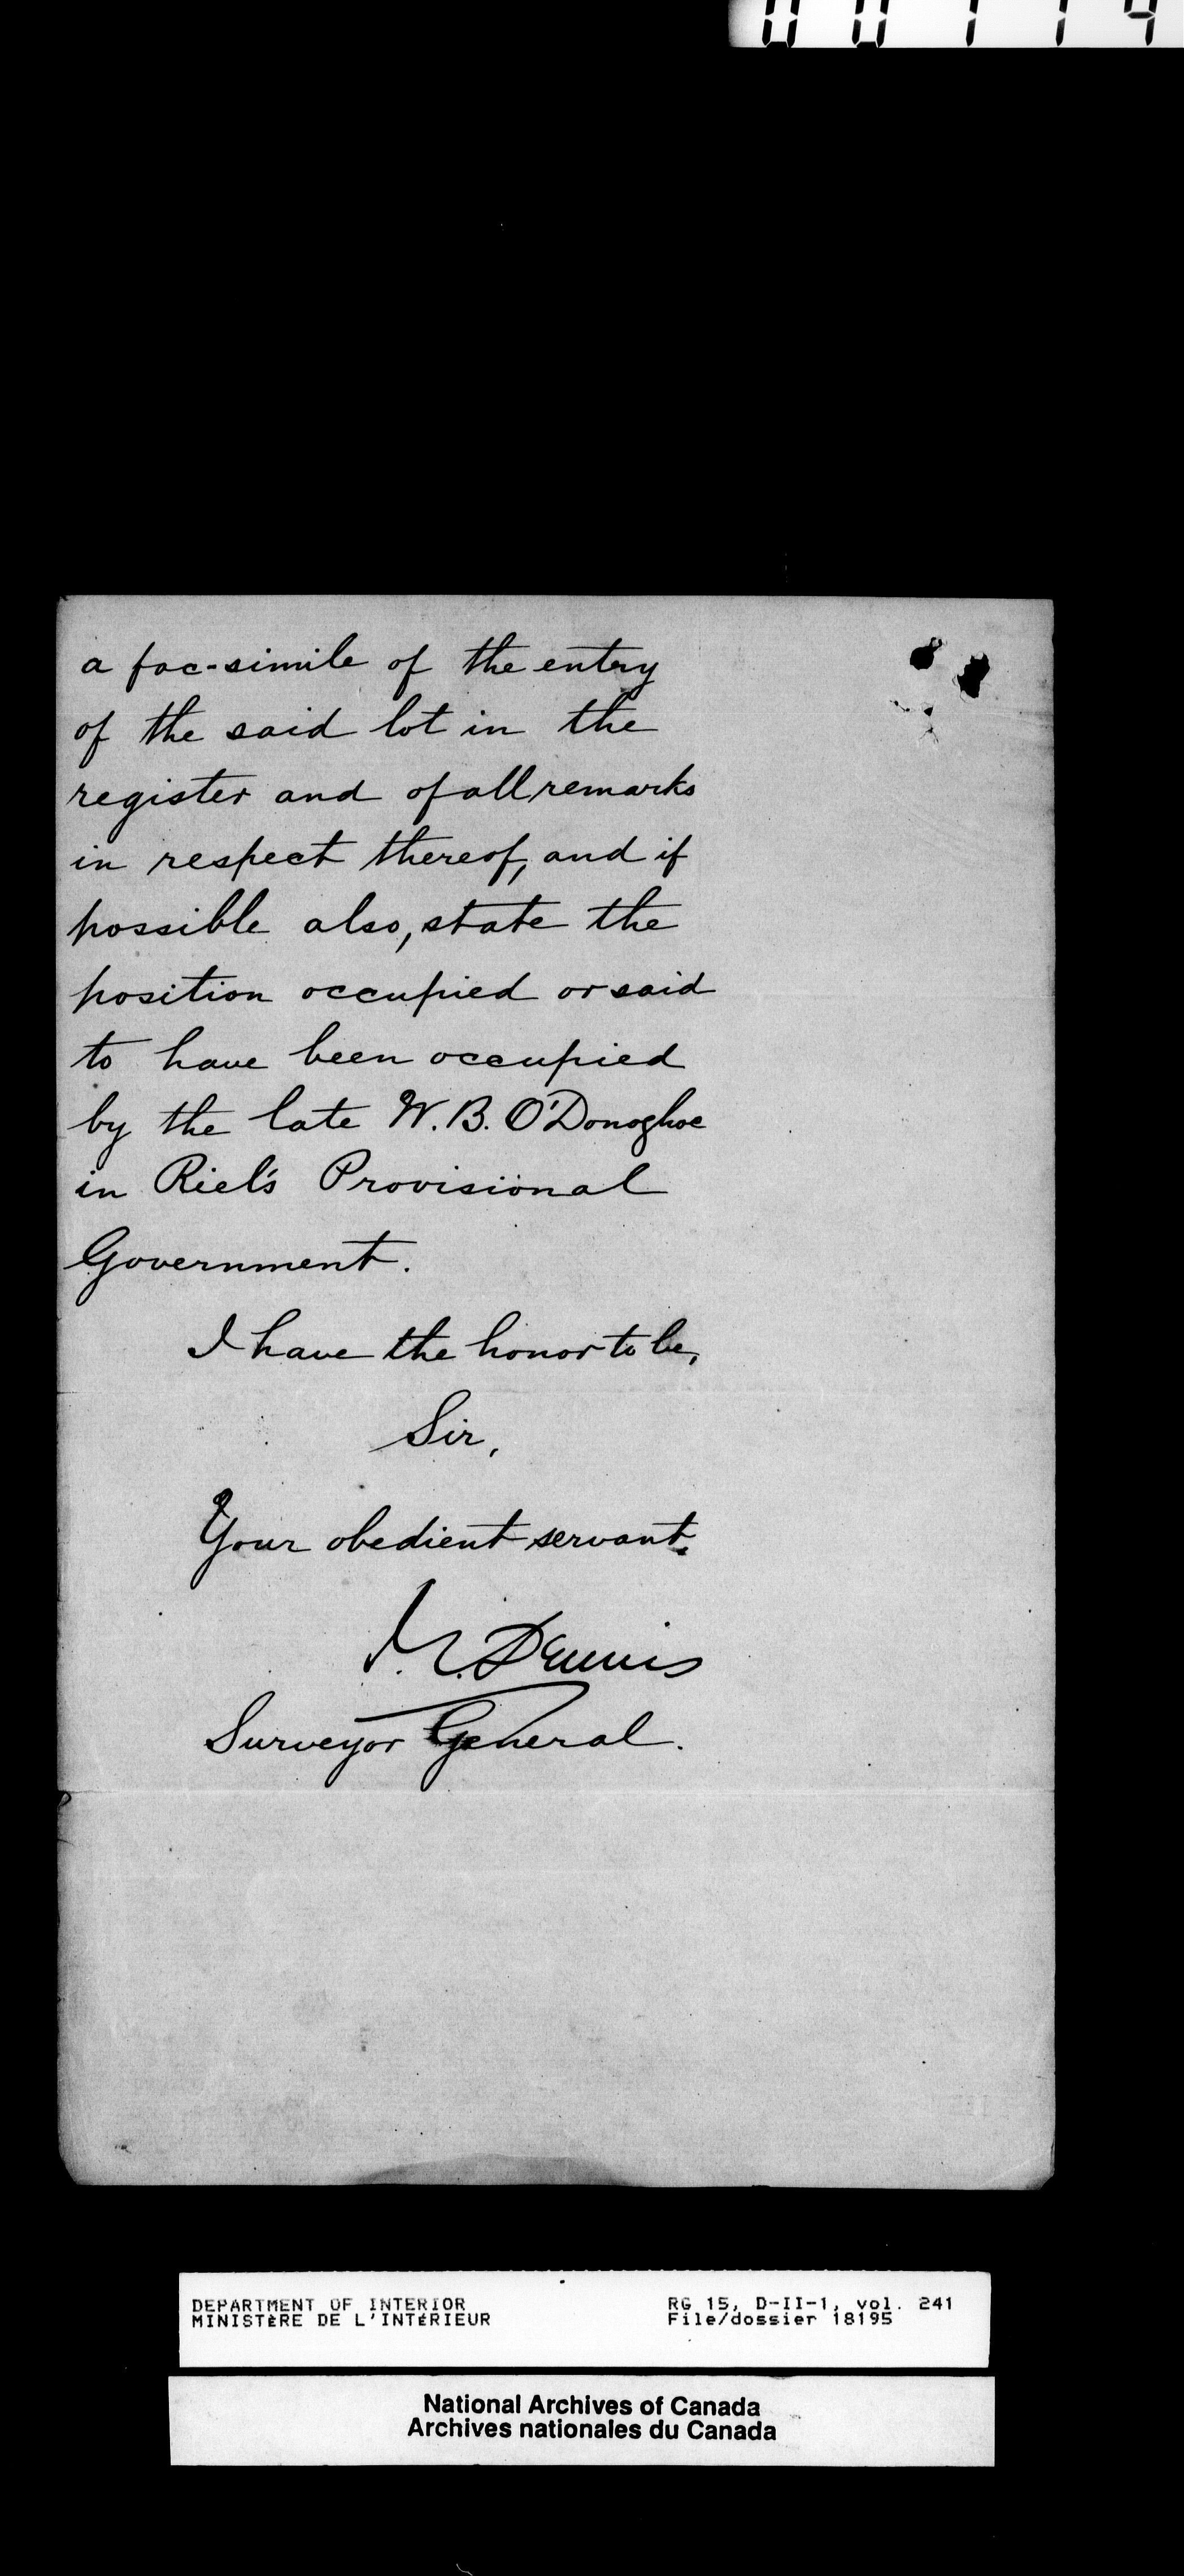 a fac-simile of the entry
of the said lot in the
register and of all remarks
in respect thereof, and if
possible also, state the
position occupied or said
to have been occupied
by the late W. B. O'Donoghoe
in Riel's Provisional
Government.
I have the honor to be,
Sir,
Your obedient servant.
Dennis
Surveyor General.
DEPARTMENT OF INTERIOR
MINISTÈRE DE L'INTÉRIEUR
RG 15, D-II-1, vol. 241
File/dossier 18195
National Archives of Canada
Archives nationales du Canada